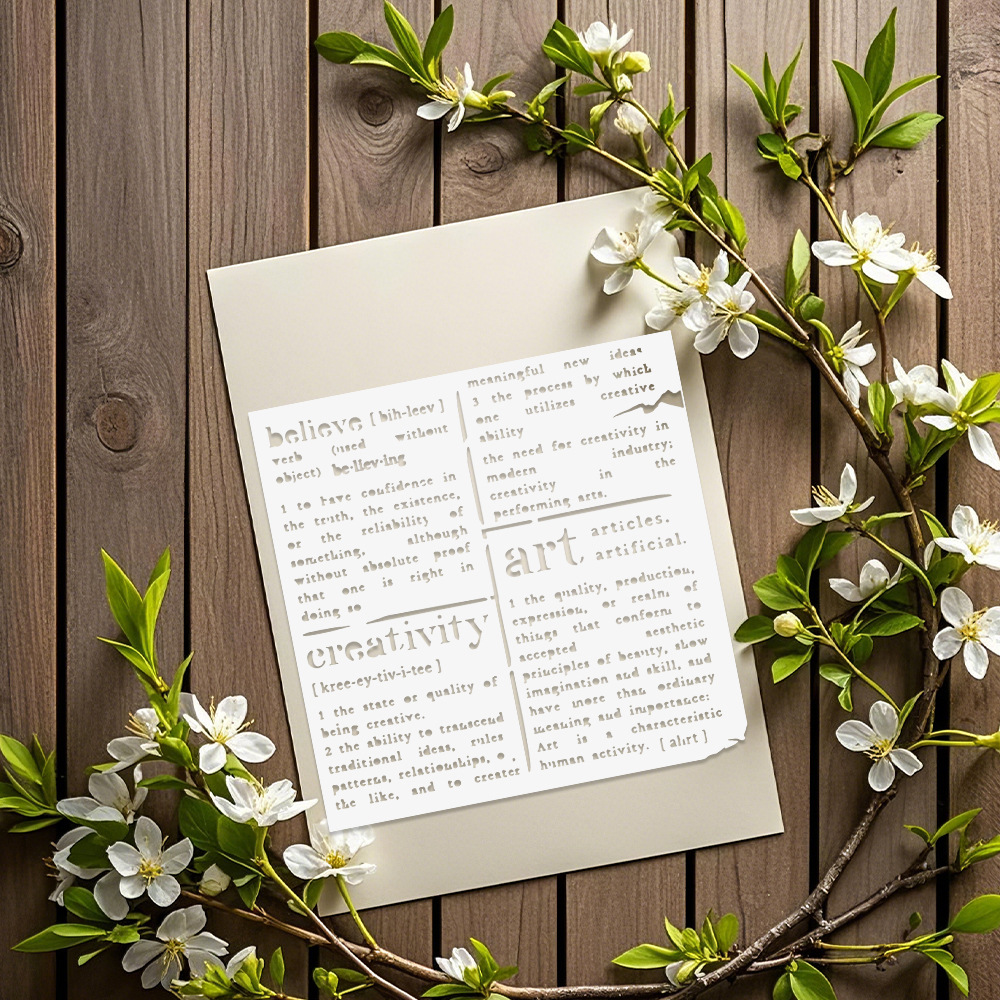 believe [bih-leev]
verb (used without
object) be·liev·ing
1 to have confidence in
the truth, the existence,
or the reliability of
something, although
without absolute proof
that one is right in
doing so
creativity
[kree-ey-tiv-i-tee]
1 the state or quality of
being creative.
2 the ability to transcend
traditional ideas, rules
patterns, relationships, o ,
the like, and to creater
meaningful new ideas
3 the process by which
one utilizes creative
ability
the need for creativity in
modern industry;
creativity in the
performing arts.
art articles.
artificial.
1 the quality, production,
expression, or realm of
things that conform to
accepted aesthetic
principles of beauty, show
imagination and skill, and
have more than ordinary
meaning and importance:
Art is a characteristic
human activity. [ahrt]